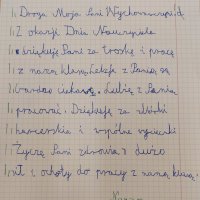 Droga Moja Pani Wychowawczyni
Z okazji Dnia Nauczyciela
dziękuję Pani za troskę i pracę
z naszą klasą. Lekcje z Panią są
bardzo ciekawe. Lubię z Panią
pracować. Dziękuję za zbiórki
harcerskie i wspólne wycieczki
Życzę Pani zdrowia, dużo
sił i ochoty do pracy z naszą klasą.